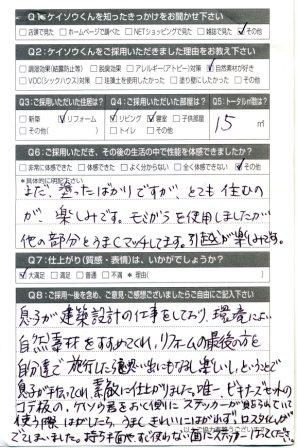 Q1：ケイソウくんを知ったきっかけをお聞かせ下さい
□店頭で見た □ホームページで調べた □NETショッピングで見た □雑誌で見た ☑その他
Q2：ケイソウくんをご採用いただきました理由をお教え下さい
□調湿効果(結露防止等) □脱臭効果 □アレルギー(アトピー)対策 ☑自然素材が好き
□VOC(シックハウス)対策 □珪藻土を使用したかった □塗り壁にしたかった □その他
Q3：ご採用いただいた住居は？ Q4：ご採用いただいた部屋は？ Q5：トータル㎡数は？
□新築 ☑リフォーム ☑リビング ☑寝室 □子供部屋 15 ㎡
□その他( ) □トイレ □その他
Q6：ご採用いただき、その後の生活の中で性能を体感できましたか？
□非常に体感できた □体感できた □よく分からない □全く体感できない ☑その他
★具体的に明記下さい
まだ、塗ったばかりですが、とても住むの
が、楽しみです。モミガラを使用しましたが
他の部分とうまくマッチしてます。引越が楽しみです。
Q7：仕上がり(質感・表情)は、いかがでしょうか？
☑大満足 □満足 □普通 □不満 ★理由( )
Q8：ご採用～後を含め、ご意見・ご感想ございましたらご自由にご記入下さい
息子が建築設計の仕事をしており、環境によい
自然素材をすすめてくれ、リフォームの最後の方を
自分達で施行したら思い出にもなるし楽しいし、ということで
息子が手伝ってくれ、素敵に仕上がりました。唯一、ビギナーズセットの
コテ板の、ケイソウ君をおく側にステッカーが貼られていて
使う際、はがしたら、うまくきれいにはがれず、ロスタイムが
でてしまいました。持つ手面やまだ使わない面に